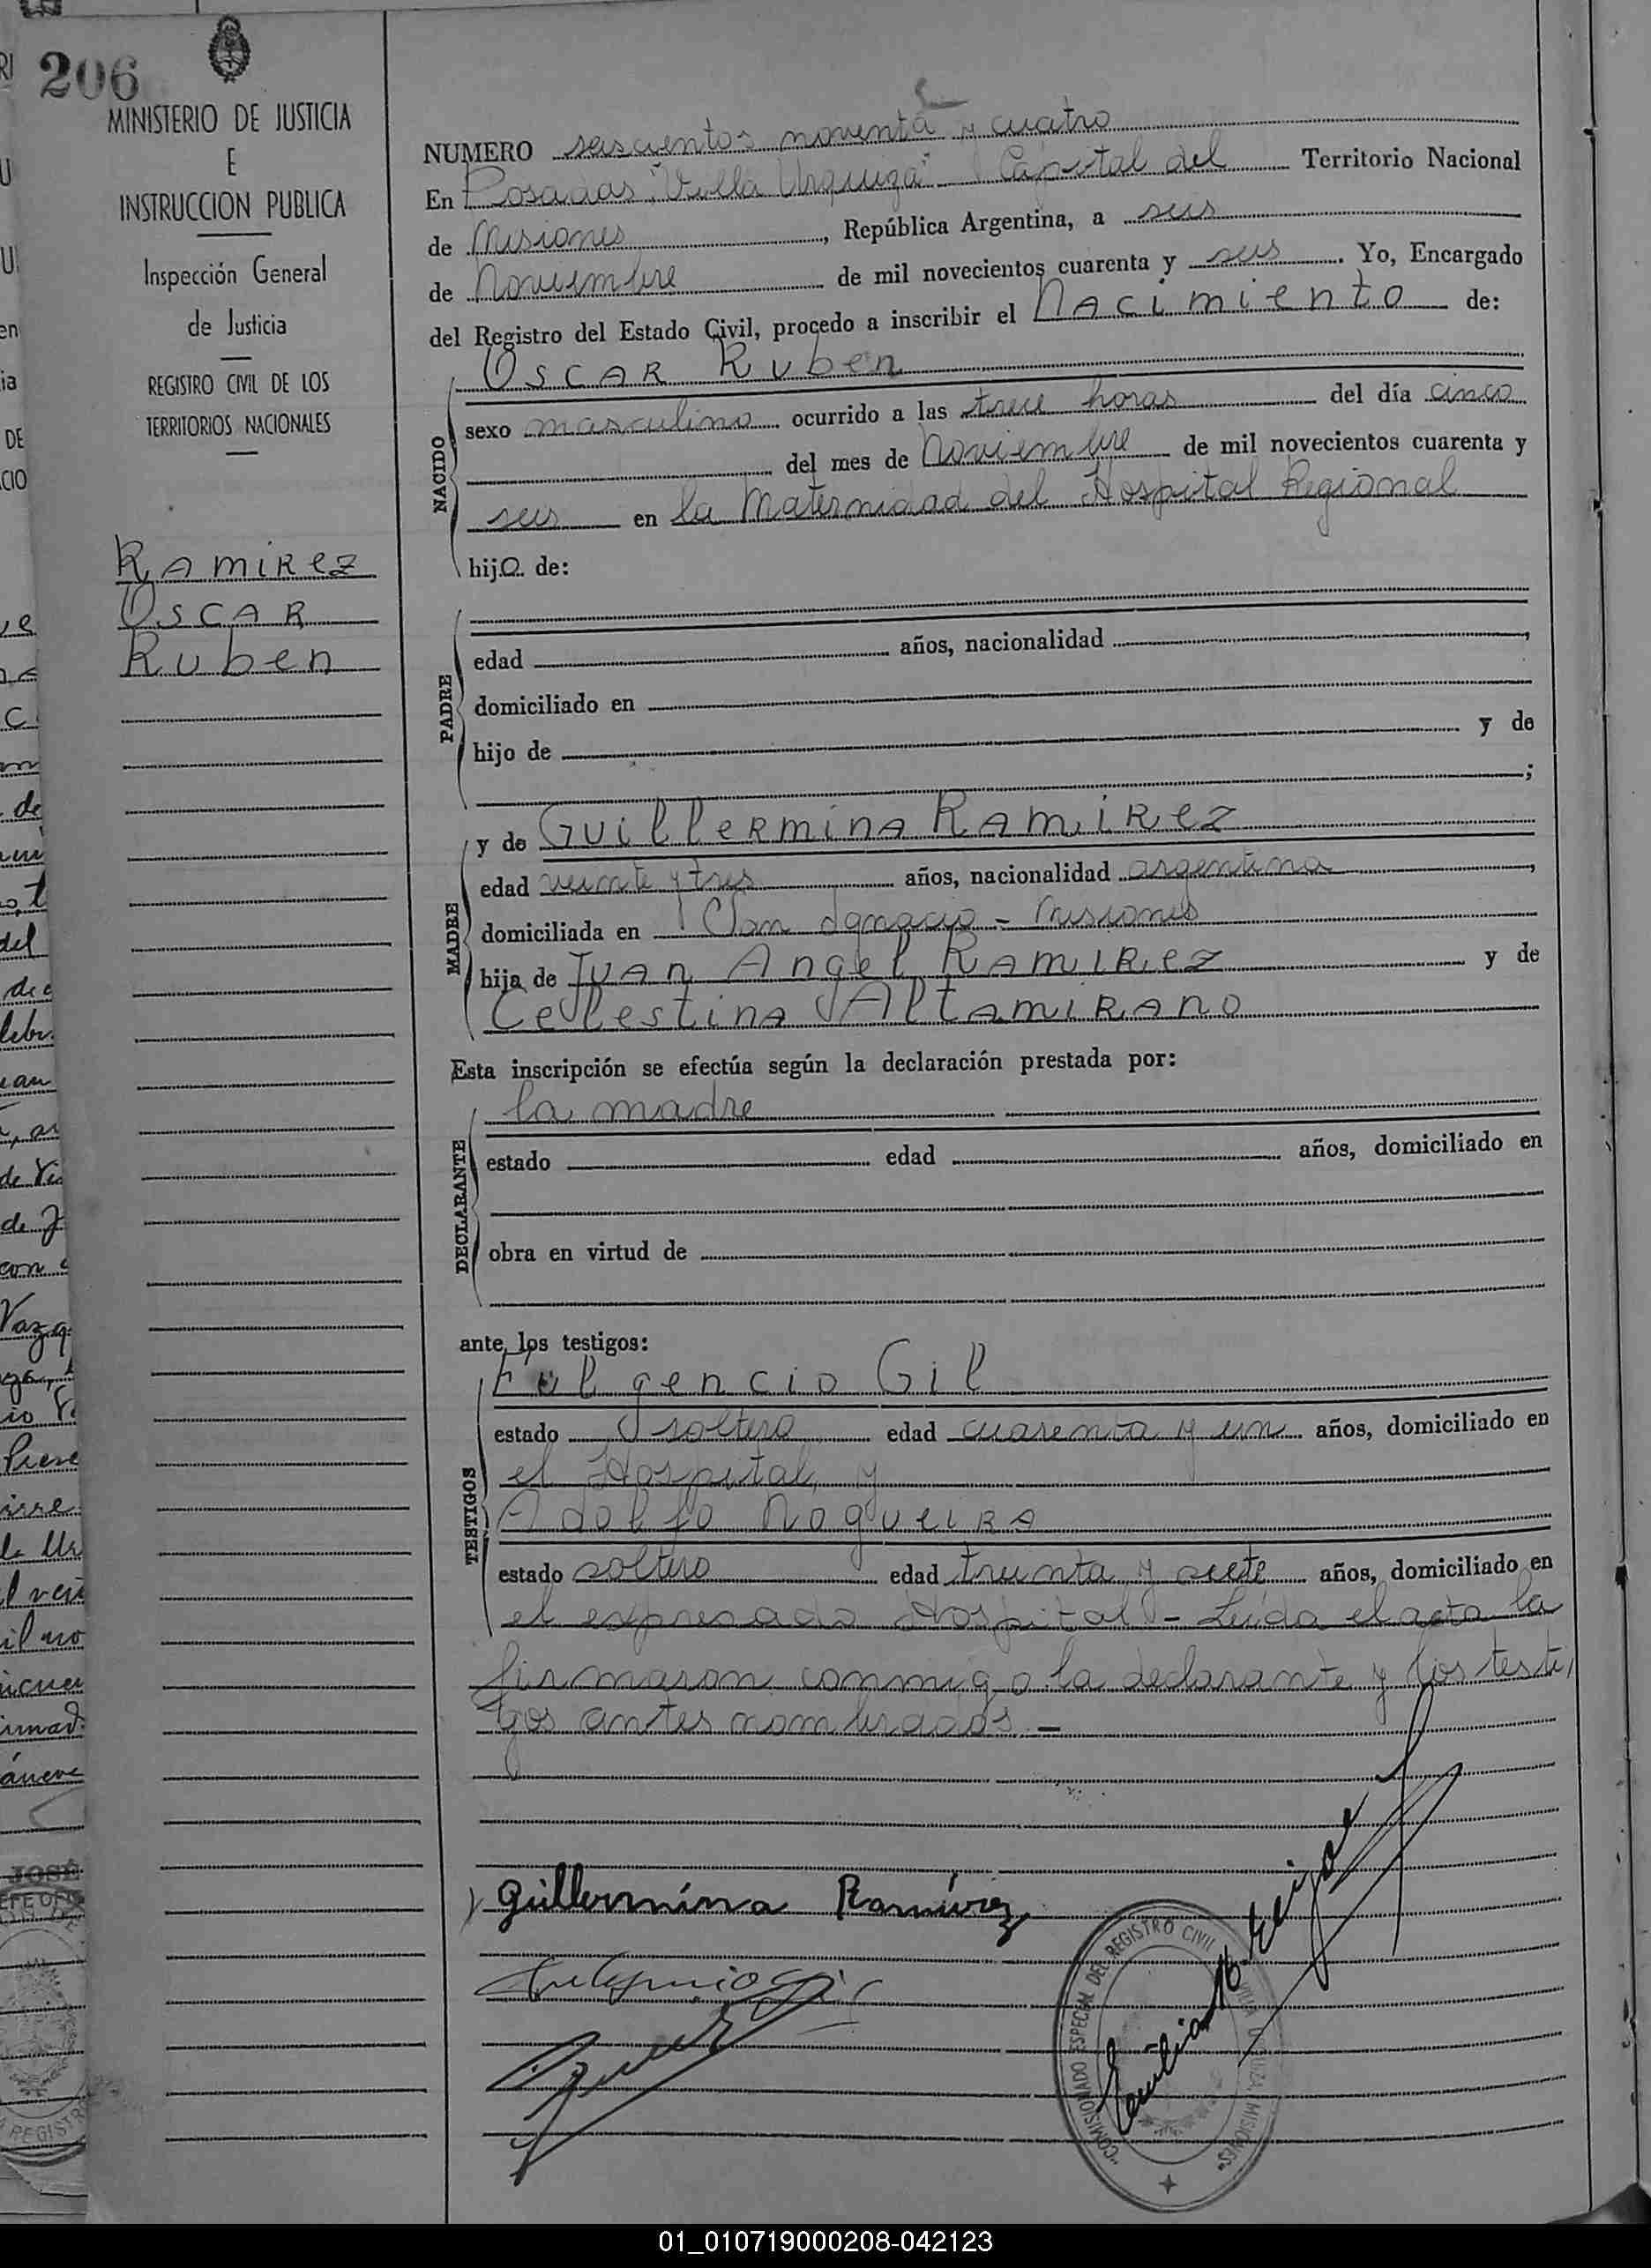 206
MINISTERIO DE JUSTICIA
E
INSTRUCCION PUBLICA
Inspección General
de Justicia
REGISTRO CIVIL DE LOS
TERRITORIOS NACIONALES
RAMIREZ
OSCAR
Ruben
NUMERO seiscientos noventa y cuatro
En Posadas, "Villa Urquiza" Capital del Territorio Nacional
de Misiones, República Argentina, a seis
de Noviembre de mil novecientos cuarenta y seis. Yo, Encargado
del Registro del Estado Civil, procedo a inscribir el Nacimiento de:
OSCAR Ruben
NACIDO
sexo masculino ocurrido a las trece horas del día cinco
del mes de Noviembre de mil novecientos cuarenta y
seis en la Maternidad del Hospital Regional
hijo de:
PADRE
edad años, nacionalidad
domiciliado en
hijo de y de
;
MADRE
y de Guillermina Ramirez
edad veinte y tres años, nacionalidad argentina,
domiciliada en San Ignacio - Misiones
hija de Juan Angel Ramirez y de
Celestina Altamirano
Esta inscripción se efectúa según la declaración prestada por:
DECLARANTE
la madre
estado edad años, domiciliado en
obra en virtud de
ante los testigos:
TESTIGOS
Fulgencio Gil
estado soltero edad cuarenta y un años, domiciliado en
el Hospital, y
Adolfo Nogueira
estado soltero edad treinta y siete años, domiciliado en
el expresado Hospital - Leída el acta la
firmaron conmigo la declarante y los testi
gos antes nombrados. -
Guillermina Ramírez
Fulgencio Gil
COMISIONADO ESPECIAL DEL REGISTRO CIVIL
VILLA URQUIZA (MISIONES)
01_010719000208-042123